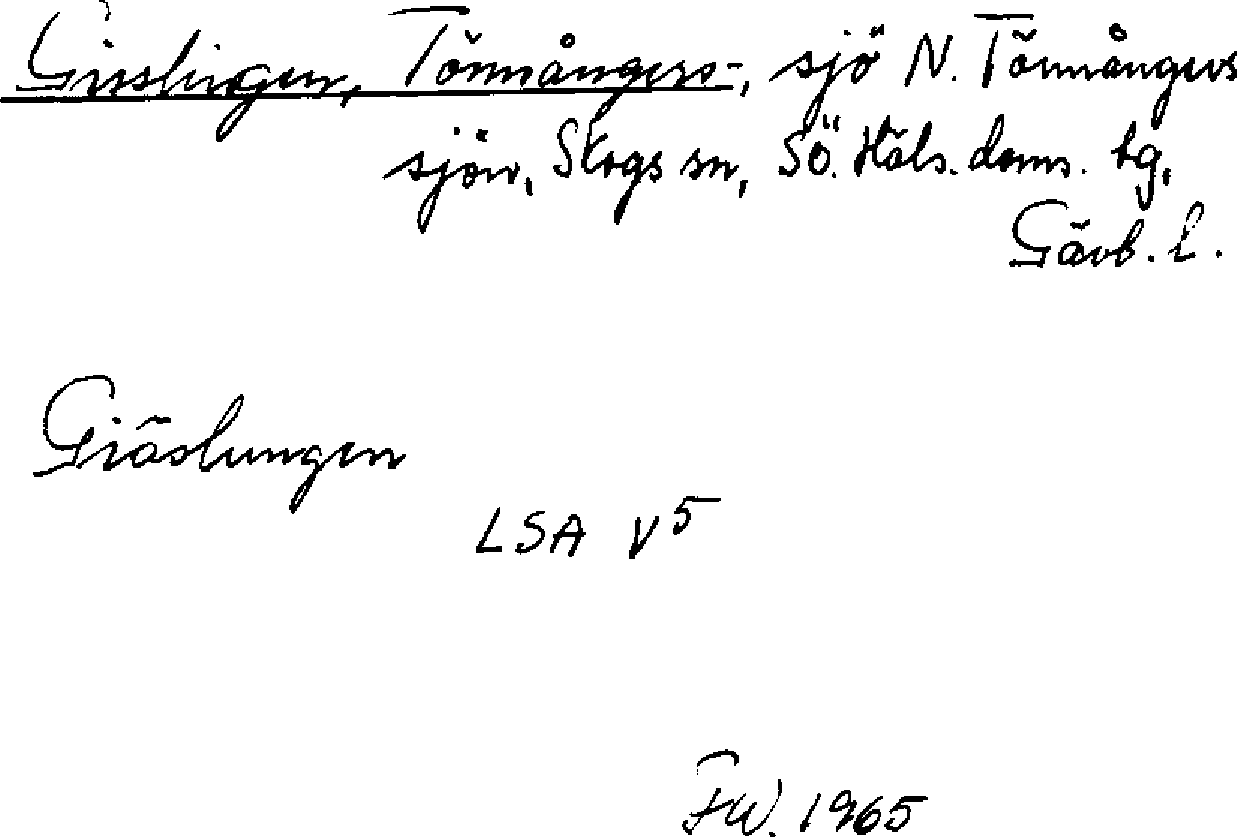 Gisslingen, Tönnångers-, sjö N. Tönnångers
sjön, Skogs sn, Sö. Häls. doms. tg,
Gävb. l.
Giäslungen
LSA V5
FW. 1965